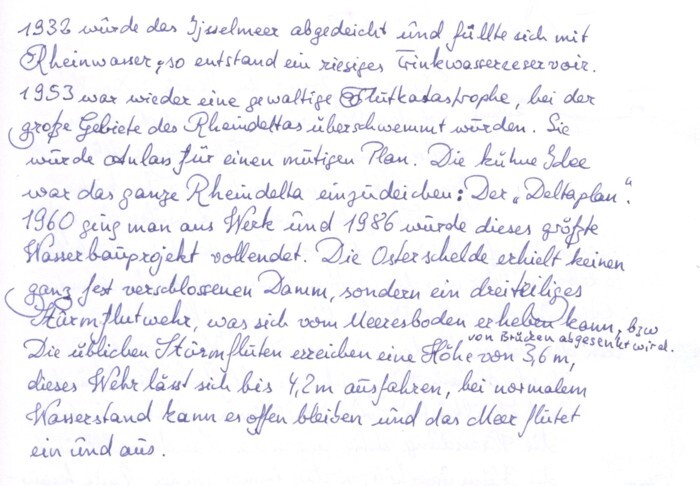 1932 wurde das Ijsselmeer abgedeicht und füllte sich mit
Rheinwasser, so entstand ein riesiges Trinkwasserreservoir.
1953 war wieder eine gewaltige Flutkatastrophe, bei der
große Gebiete des Rheindeltas überschwemmt wurden. Sie
wurde Anlas für einen mutigen Plan. Die kühne Idee
war das ganze Rheindelta einzudeichen: Der „Deltaplan“.
1960 ging man aus Werk und 1986 wurde dieses größte
Wasserbauprojekt vollendet. Die Osterschelde erhielt keinen
ganz fest verschlossenen Damm, sondern ein dreiteiliges
Sturmflutwehr, was sich vom Meeresboden erheben kann, bzw
von Brücken abgesenkt wird.
Die üblichen Sturmfluten erreichen eine Höhe von 3,6 m,
dieses Wehr lässt sich bis 4,2 m ausfahren, bei normalem
Wasserstand kann es offen bleiben und das Meer flutet
ein und aus.